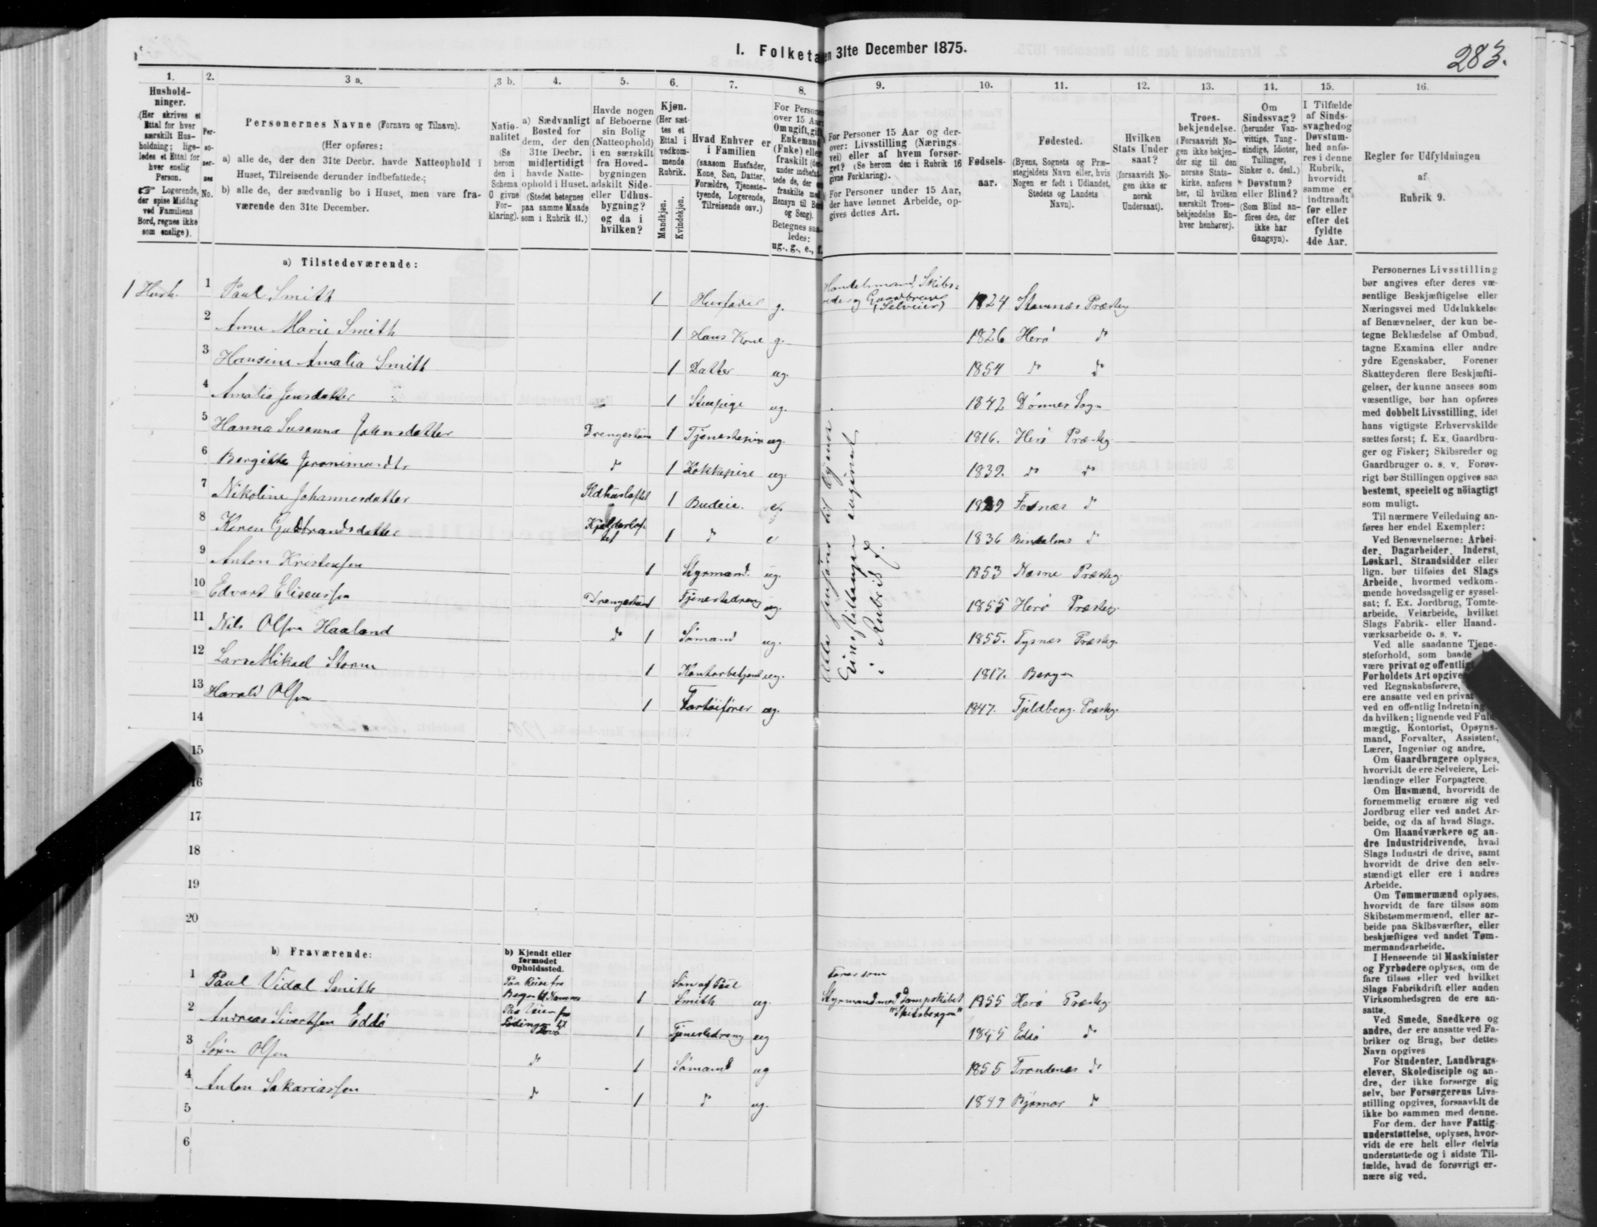 I. Folketa en 31te December 1875.
283.
1.
Hushold-
ninger.
(Her skrives et
Ettal for hver
særskilt Hus-
holdning; lige-
ledes et Ettal for
hver enslig
Person.
Logerende,
der spise Middag
ved Familiens
Bord, regnes ikke
som enslige).
2.
Per-
so-
ner-
nes
No.
3 a.
Personernes Navne (Fornavn og Tilnavn).
(Her opføres:
a) alle de, der den 31te Decbr. havde Natteophold i
Huset, Tilreisende derunder indbefattede;
b) alle de, der sædvanlig bo i Huset, men vare fra-
værende den 31te December.
3 b.
Natio-
nalitet
(Se
herom
den i
Schema
O givne
For-
klaring).
4.
a) Sædvanligt
Bosted for
dem, der den
31te Decbr.
midlertidigt
havde Natte-
ophold i Huset.
(Stedet betegnes
paa samme Maade
som i Rubrik 11.)
5.
Havde nogen
af Beboerne
sin Bolig
(Natteophold)
i en særskilt
fra Hoved-
bygningen
adskilt Side-
eller Udhus-
bygning?
og da i
hvilken?
6.
Kjøn.
(Her sæt-
tes et
Ettal i
vedkom-
mende
Rubrik.
Mandkjøn.
Kvindekjøn.
7.
Hvad Enhver er
i Familien
(saasom Husfader,
Kone, Søn, Datter,
Forældre, Tjeneste-
tyende, Logerende,
Tilreisende osv.)
8.
For Person
over 15 Aar
Om ugift, gift
Enkemand
(Enke) eller
fraskilt
Betegnes saa-
ledes:
ug., g., e., f.
9.
For Personer 15 Aar og der-
over: Livsstilling (Nærings-
vei) eller af hvem forsør-
get? (Se herom den i Rubrik 16
givne Forklaring).
For Personer under 15 Aar,
der have lønnet Arbeide, op-
gives dettes Art.
10.
Fødsels-
aar.
11.
Fødested.
(Byens, Sognets og Præ-
stegjeldets Navn eller, hvis
Nogen er født i Udlandet,
Stedets og Landets
Navn).
12.
Hvilken
Stats Under
saat?
(forsaavidt No-
gen ikke er
norsk
Undersaat).
13.
Troes-
bekjendelse.
(Forsaavidt No-
gen ikke bekjen-
der sig til den
norske Stats-
kirke, anføres
her, til hvilken
særskilt Troes-
bekjendelse En-
hver henhører).
14.
Om
Sindssvag?
(herunder Van-
vittige, Tung-
sindige, Idioter,
Tullinger,
Sinker o. desl.)
Døvstum?
eller Blind?
(Som Blind an-
føres den, der
ikke har
Gangsyn).
15.
I Tilfælde
af Sinds-
svaghed og
Døvstum-
hed anfø-
res i denne
Rubrik,
hvorvidt
samme er
indtraadt
før eller
efter det
fyldte
4de Aar.
16.
Regler for Udfyldningen
af
Rubrik 9.
a) Tilstedeværende:
1 Hush. 1 Paul Smith 1 Husfader g. Handelsmand, Skibs-
reder og Gaardbruger
(Selveier) 1824 Stamnæs Præsteg
2 Anne Marie Smith 1 Hans Kone g. 1826 Herø do
3 Hansine Amalia Smith 1 Datter ug. 1854 do do
4 Amalia Jensdatter 1 Stuepige ug. 1842 Dønnes Sogn
5 Hanna Susanna Johnsdatter Drengestuen 1 Tjenestepige ug. 1816. Herø Præsteg
6 Bergitte Jeronimusdtr do 1 Kokkepige ug. 1832. do do
7 Nikoline Johannesdatter Ildhusloftet 1 Budeie. e. 1829 Fosnæs do
8 Karen Guldbrandsdatter 1 do e 1836 Bindalens do
9 Anton Kristensen 1 Styrmand. ug. 1853 Næsne Præsteg
10 Edvard Eliseussen Drengestuen Tjenestedreng ug. 1855 Herø Præsteg
11 Nils Olsen Haaland do 1 Sømand ug. 1855. Tysnæs Præsteg.
12 Lars Mikael Storm 1 Kontorbetjent ug. 1817. Bergen
13 Harald Olsen 1 Fartøifører ug. 1847. Fjeldberg Præsteg.
14
15
16
17
18
19
20
b) Fraværende:
b) Kjendt eller
formodet
Opholdssted.
1 Paul Vidal Smith Paa Reise fra
Bergen til Hammer 1 Søn af Poul
Smith ug. Faras som
Styrmand med Dampskibet
"Skibsbergen" 1855 Herø Præsteg
2 Andreas Sivertsen Eddø 1 Tjenestedreng ug 1845 Eddø do
3 Søren Olsen do 1 Sømand ug 1855 Trondenæs do
4 Anton Sakariassen do 1 do ug. 1849 Bjørnør do
5
6
Personernes Livsstilling
bør angives efter deres væ-
sentlige Beskjæftigelse eller
Næringsvei med Udelukkelse
af Benævnelser, der kun be-
tegne Beklædelse af Ombud,
tagne Examina eller andre
ydre Egenskaber. Forener
Skatteyderen flere Beskjæfti-
gelser, der kunne ansees som
væsentlige, bør han opføres
med dobbelt Livsstilling, idet
hans vigtigste Erhvervskilde
sættes først; f. Ex. Gaardbru-
ger og Fisker; Skibsreder og
Gaardbruger o. s. v. Forøv-
rigt bør Stillingen opgives saa
bestemt, specielt og nöiagtigt
som muligt.
Til nærmere Veiledning an-
føres her endel Exempler:
Ved Benævnelserne: Arbei-
der, Dagarbeider, Inderst,
Løskarl, Strandsidder eller
lign. bør tilføies det Slags
Arbeide, hvormed vedkom-
mende hovedsagelig er syssel-
sat; f. Ex. Jordbrug, Tomte-
arbeide, Veiarbeide, hvilket
Slags Fabrik- eller Haand-
værksarbeide o. s. v.
Ved alle saadanne Tjene-
steforhold, som baade
være privat og offentlig
Forholdets Art opgives
ved Regnskabsførere,
ere ansatte ved en privat
ved en offentlig Indretning
da hvilken; lignende ved Fuld-
mægtig, Kontorist, Opsyns-
mand, Forvalter, Assistent,
Lærer, Ingeniør og andre.
Om Gaardbrugere oplyses,
hvorvidt de ere Selveiere, Lei-
lændinge eller Forpagtere.
Om Husmænd, hvorvidt de
fornemmelig ernære sig ved
Jordbrug eller ved andet Ar-
beide, og da af hvad Slags.
Om Haandværkere og an-
dre Industridrivende, hvad
Slags Industri de drive, samt
hvorvidt de drive den selv-
stændigt eller ere i andres
Arbeide.
Om Tømmermænd oplyses,
hvorvidt de fare tilsøs som
Skibstømmermænd, eller ar-
beide paa Skibsværfter, eller
beskjæftiges ved andet Tøm-
mermandsarbeide.
I Henseende til Maskinister
og Fyrbødere oplyses, om de
fare tilsøs eller ved hvilket
Slags Fabrikdrift eller anden
Virksomhedsgren de ere an-
satte.
Ved Smede, Snedkere og
andre, der ere ansatte ved Fa-
briker og Brug, bør dettes
Navn opgives
For Studenter, Landbrugs-
elever, Skoledisciple og an-
dre, der ikke forsørge sig
selv, bør Forsørgerens Livs-
stilling opgives, forsaavidt de
ikke bo sammen med denne.
For dem, der have Fattig-
understøttelse, oplyses, hvor-
vidt de ere helt eller delvis
understøttede og i sidste Til-
fælde, hvad de forøvrigt er-
nære sig ved.